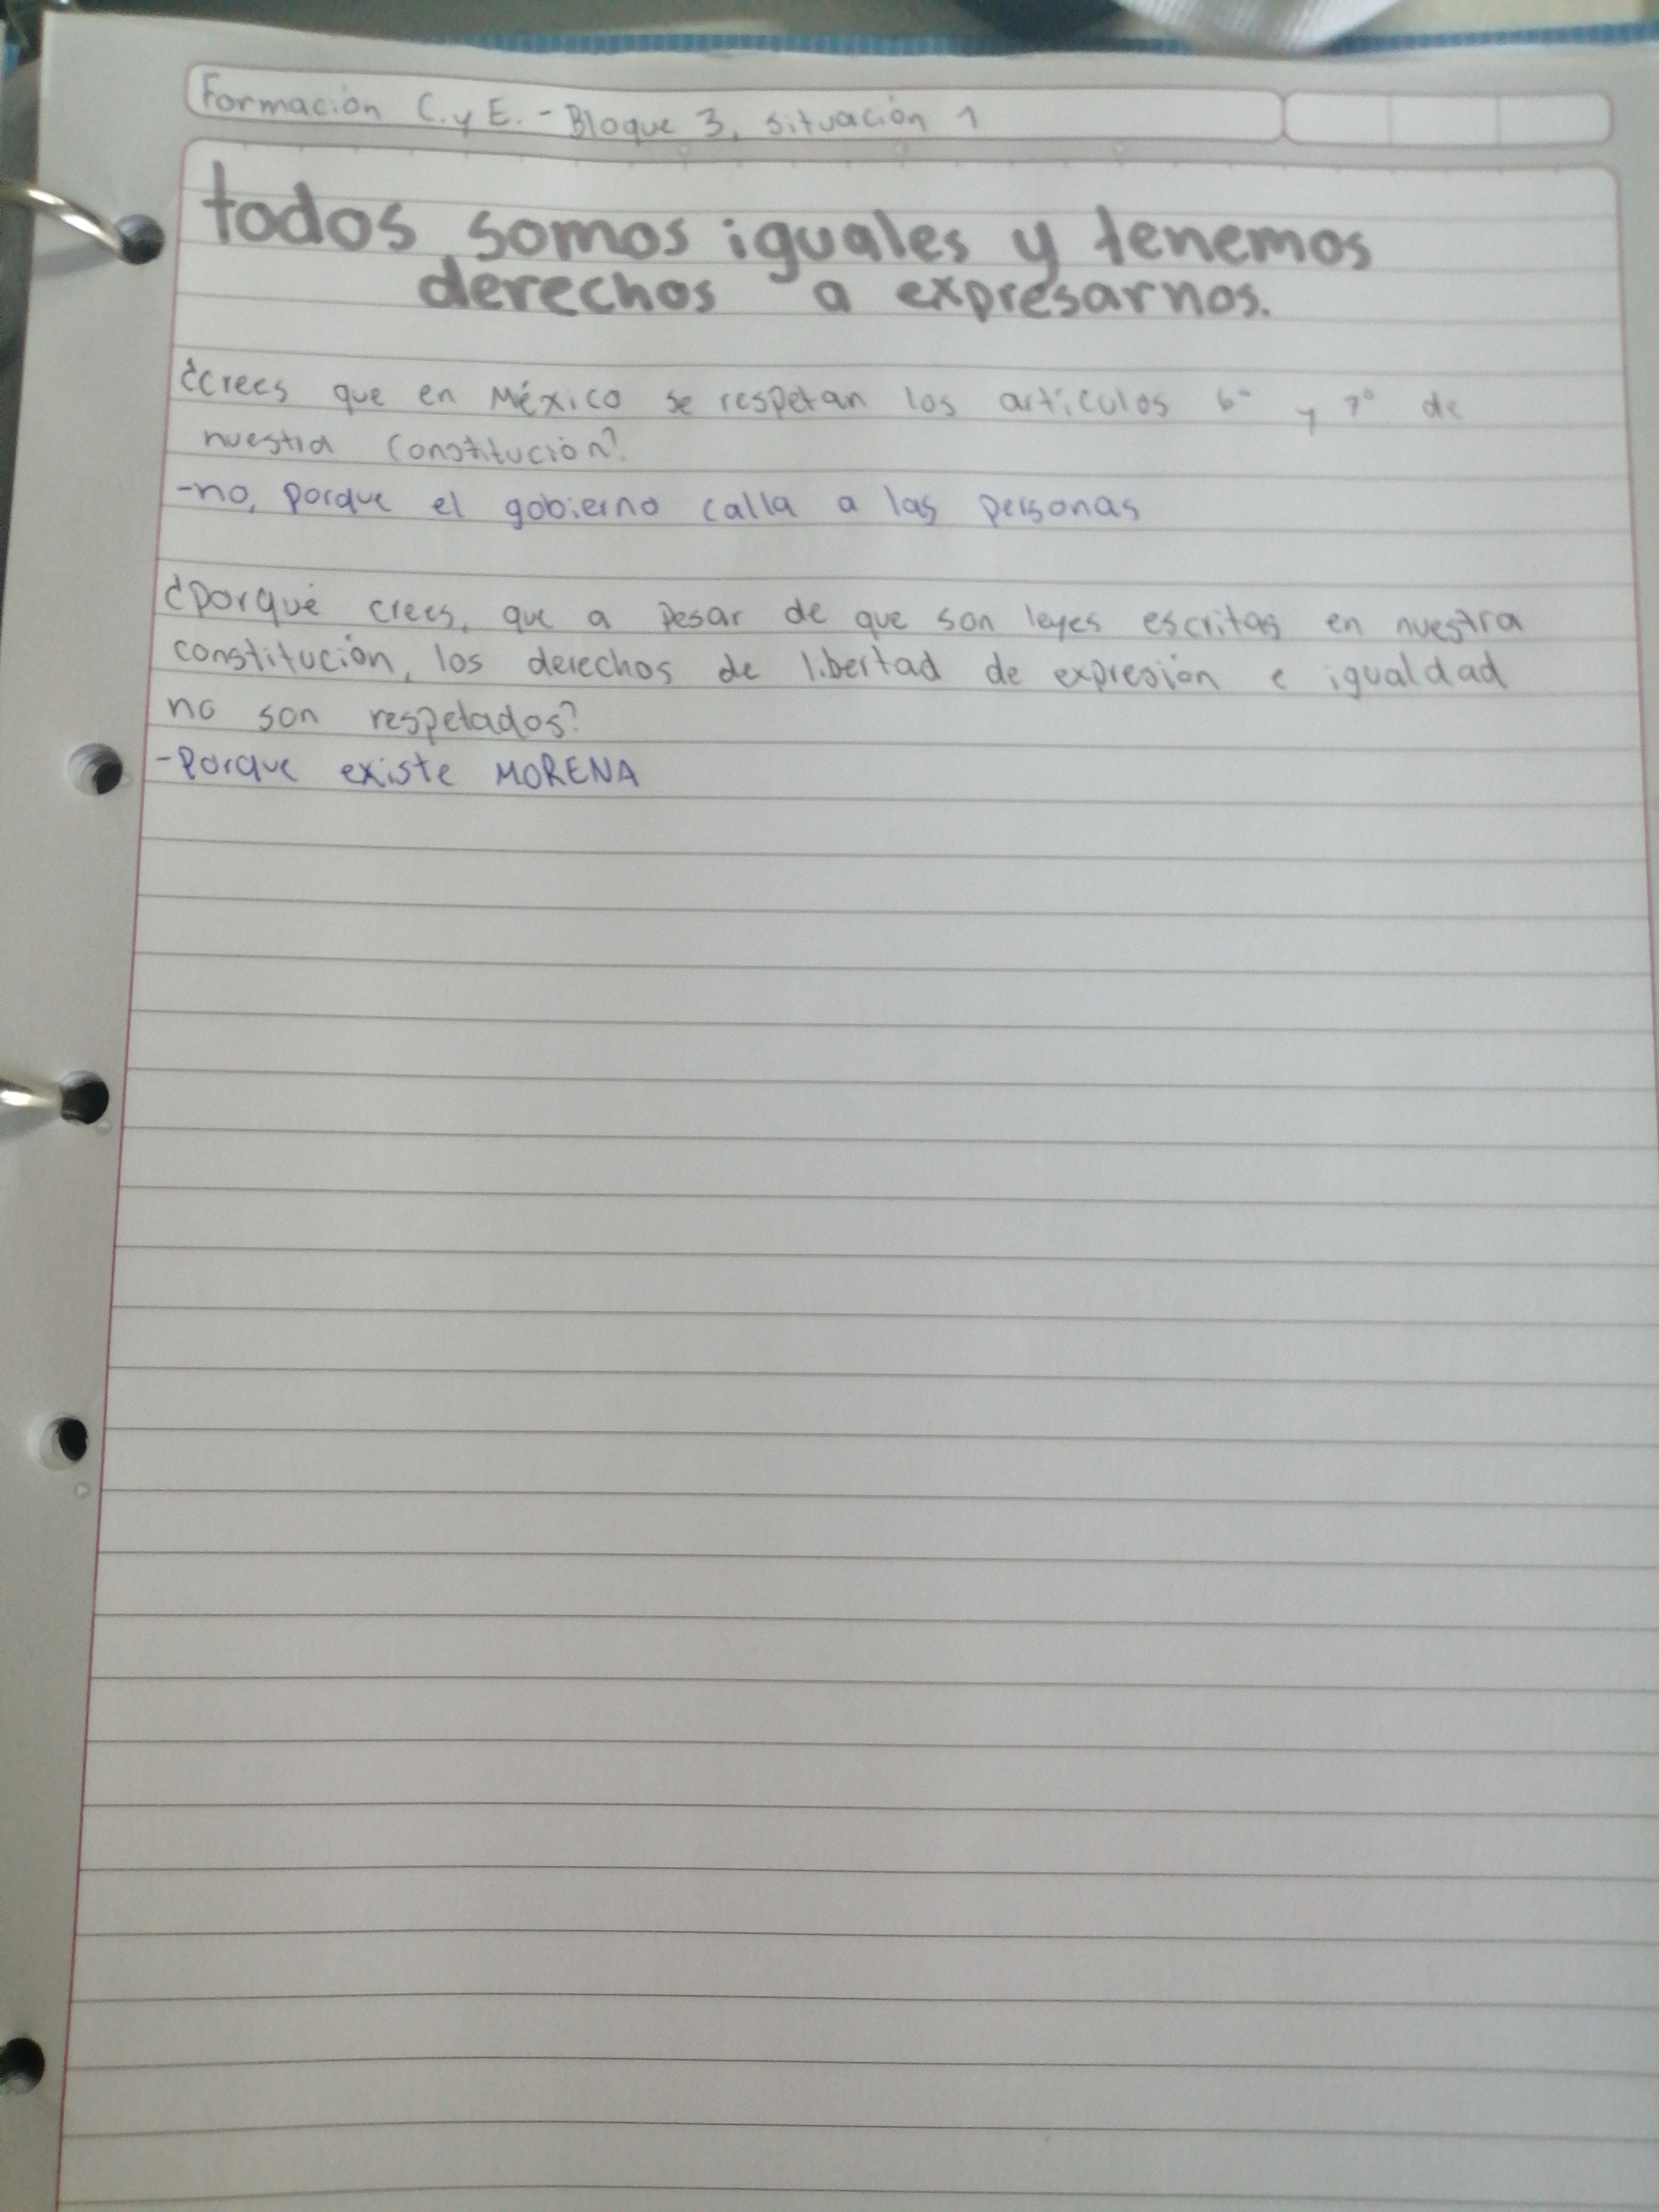 Formación C. y E. - Bloque 3, situación 1
todos somos iguales y tenemos
derechos a expresarnos.
¿crees que en México se respetan los artículos 6° y 7° de
nuestra Constitución?
-no, porque el gobierno calla a las personas
¿porqué crees, que a pesar de que son leyes escritas en nuestra
constitución, los derechos de libertad de expresión e igualdad
no son respetados?
-Porque existe MORENA